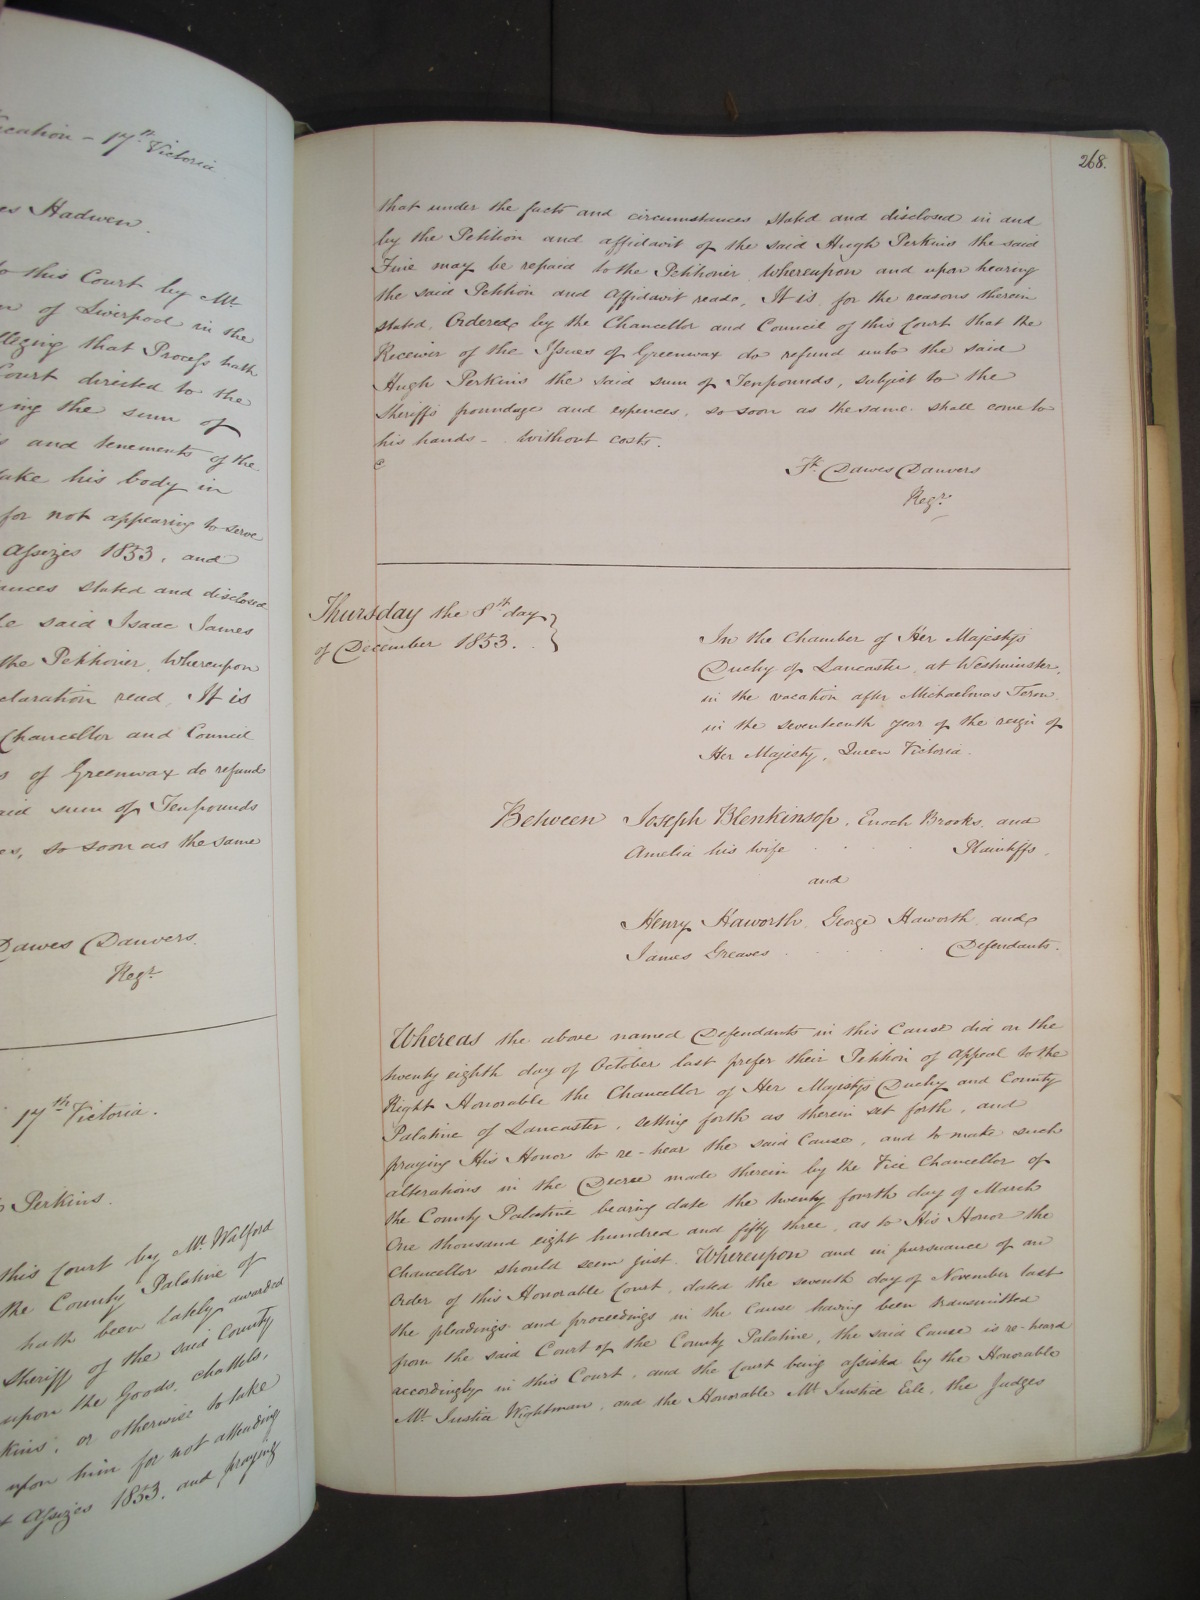 acation - 17th Victoria
es Hadwen.
to this Court by Mr.
of Liverpool in the
lleging that Process hath
Court directed to the
ing the sum of
s and tenements of the
take his body in
for not appearing to serve
Assizes 1853, and
ances stated and disclosed
said Isaac James
the Petitioner, Whereupon
claration read, It is
Chancellor and Council
s of Greenwax do refund
aid sum of Ten pounds
es, so soon as the same
Dawes Danvers.
Regr.
17th Victoria.
Perkins.
this Court by Mr. Walford
the County Palatine of
hath been lately awarded
Sheriff of the said County
upon the Goods, chattels,
kins, or otherwise to take
upon him for not attending
Assizes 1853, and praying
268.
that under the facts and circumstances stated and disclosed in and
by the Petition and affidavit of the said Hugh Perkins the said
Fine may be repaid to the Petitioner, Whereupon and upon hearing
the said Petition and Affidavit read, It is, for the reasons therein
stated, Ordered by the Chancellor and Council of this Court that the
Receiver of the Issues of Greenwax do refund unto the said
Hugh Perkins the said sum of Ten pounds, subject to the
Sheriff's poundage and expences, so soon as the same shall come to
his hands - without costs.
Fk. Dawes Danvers
Regr.
Thursday the 8th day
of December 1853.
In the Chamber of Her Majesty's
Duchy of Lancaster, at Westminster,
in the vacation after Michaelmas Term
in the seventeenth year of the reign of
Her Majesty, Queen Victoria.
Between Joseph Blenkinsop, Enoch Brooks, and
Amelia his wife . . . . Plaintiffs,
and
Henry Haworth, George Haworth, and
James Greaves . . . . Defendants.
Whereas the above named Defendants in this Cause did on the
twenty eighth day of October last prefer their Petition of Appeal to the
Right Honorable the Chancellor of Her Majesty's Duchy and County
Palatine of Lancaster, setting forth as therein set forth, and
praying His Honor to re-hear the said Cause, and to make such
alterations in the Decree made therein by the Vice Chancellor of
the County Palatine bearing date the twenty fourth day of March
One thousand eight hundred and fifty three, as to His Honor the
Chancellor should seem just. Whereupon and in pursuance of an
Order of this Honorable Court, dated the seventh day of November last
the pleadings and proceedings in the Cause having been transmitted
from the said Court of the County Palatine, the said Cause is re-heard
accordingly in this Court, and the Court being assisted by the Honorable
Mr. Justice Wightman, and the Honorable Mr. Justice Erle, the Judges